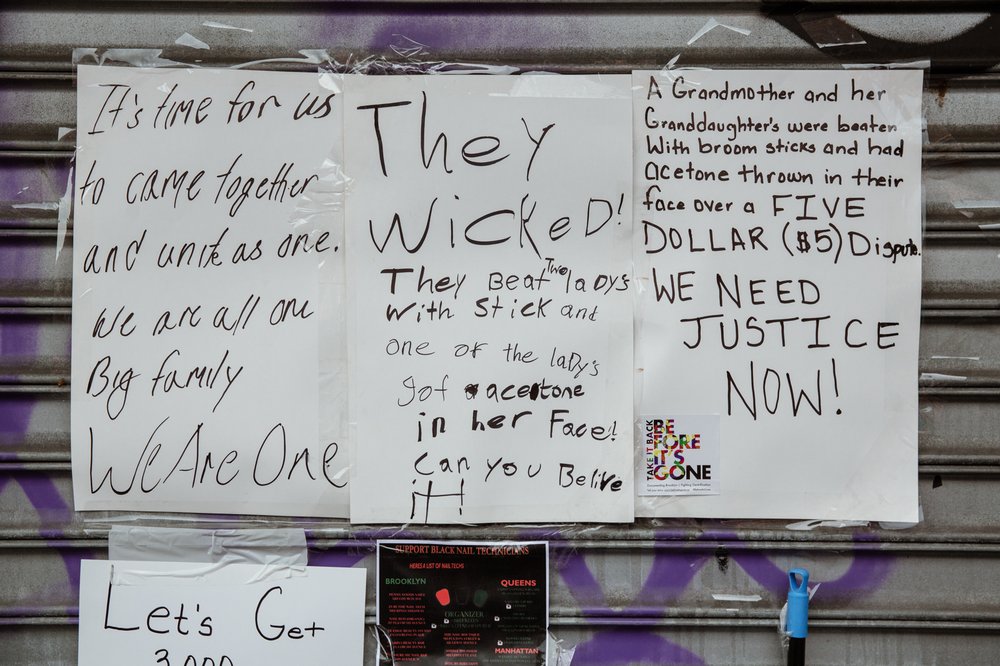 It's time for us
to came together
and unite as one.
We are all one
Big family
We Are One
They
Wicked!
They Beat Two ladys
With Stick and
one of the ladys
got acetone
in her Face!
can you Belive
it!
A Grandmother and her
Granddaughter's were beaten
With broom sticks and had
acetone thrown in their
face over a FIVE
DOLLAR ($5) Dispute.
WE NEED
JUSTICE
NOW!
TAKE IT BACK
BE
FORE
IT'S
GONE
Let's Get
3,000
SUPPORT BLACK NAIL TECHNICIANS
HERES A LIST OF NAIL TECHS
BROOKLYN
QUEENS
ORGANIZER
MANHATTAN